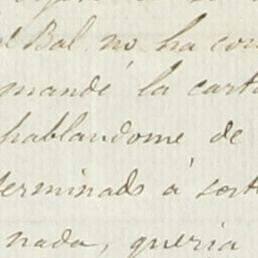 el Bal no ha con
mandé la carta
hablandome de
terminado á sort
nada, queria